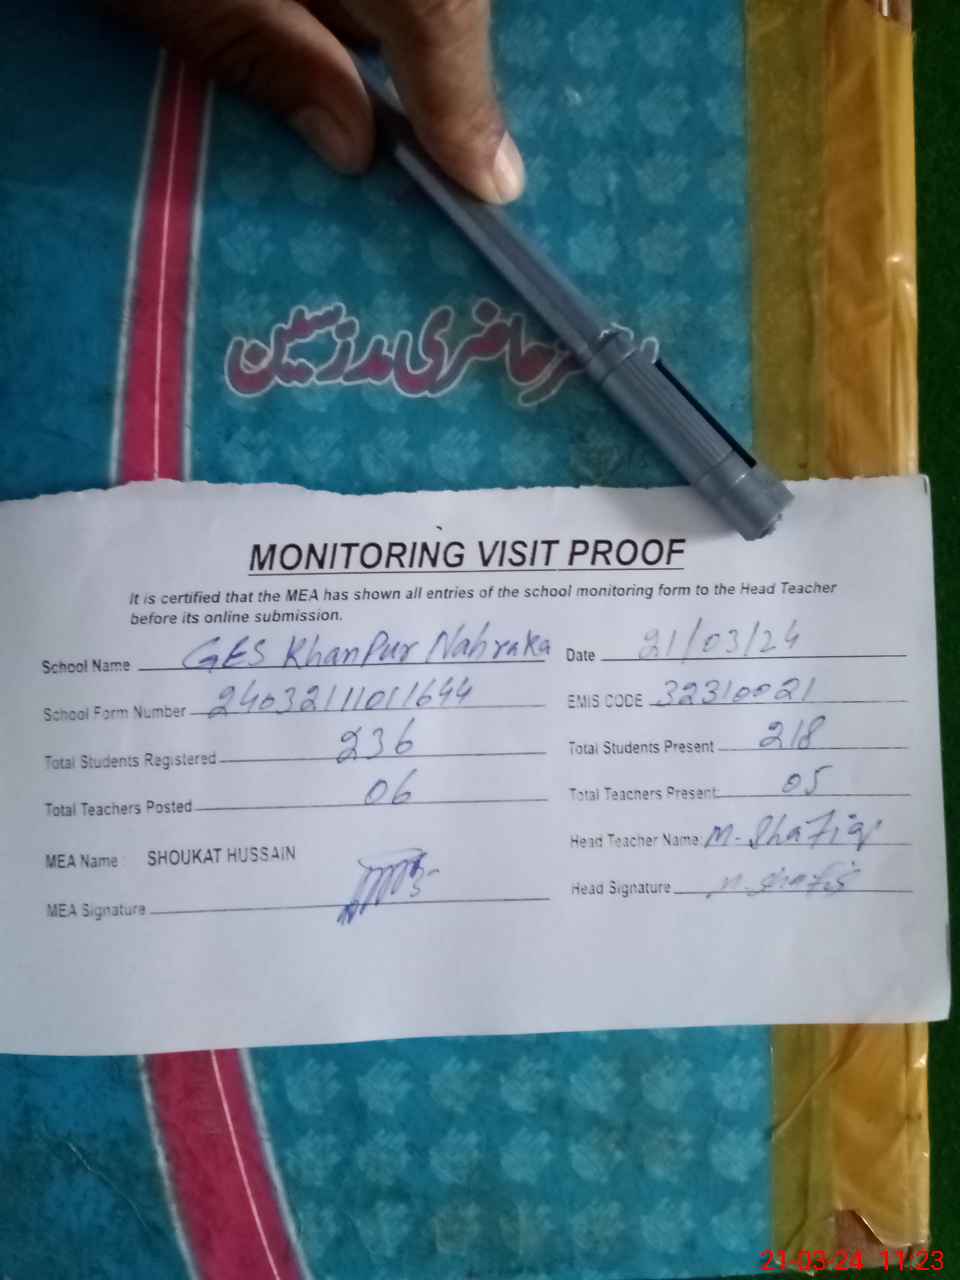 حاضری مدرسین
MONITORING VISIT PROOF
It is certified that the MEA has shown all entries of the school monitoring form to the Head Teacher
before its online submission.
School Name GES Khanpur Nahraka Date 21/03/24
School Form Number 24032111011644 EMIS CODE 32310021
Total Students Registered 236 Total Students Present 218
Total Teachers Posted 06 Total Teachers Present 05
MEA Name : SHOUKAT HUSSAIN Head Teacher Name: M. Shafiq
MEA Signature Head Signature M. Shafiq
21-03-24 11:23